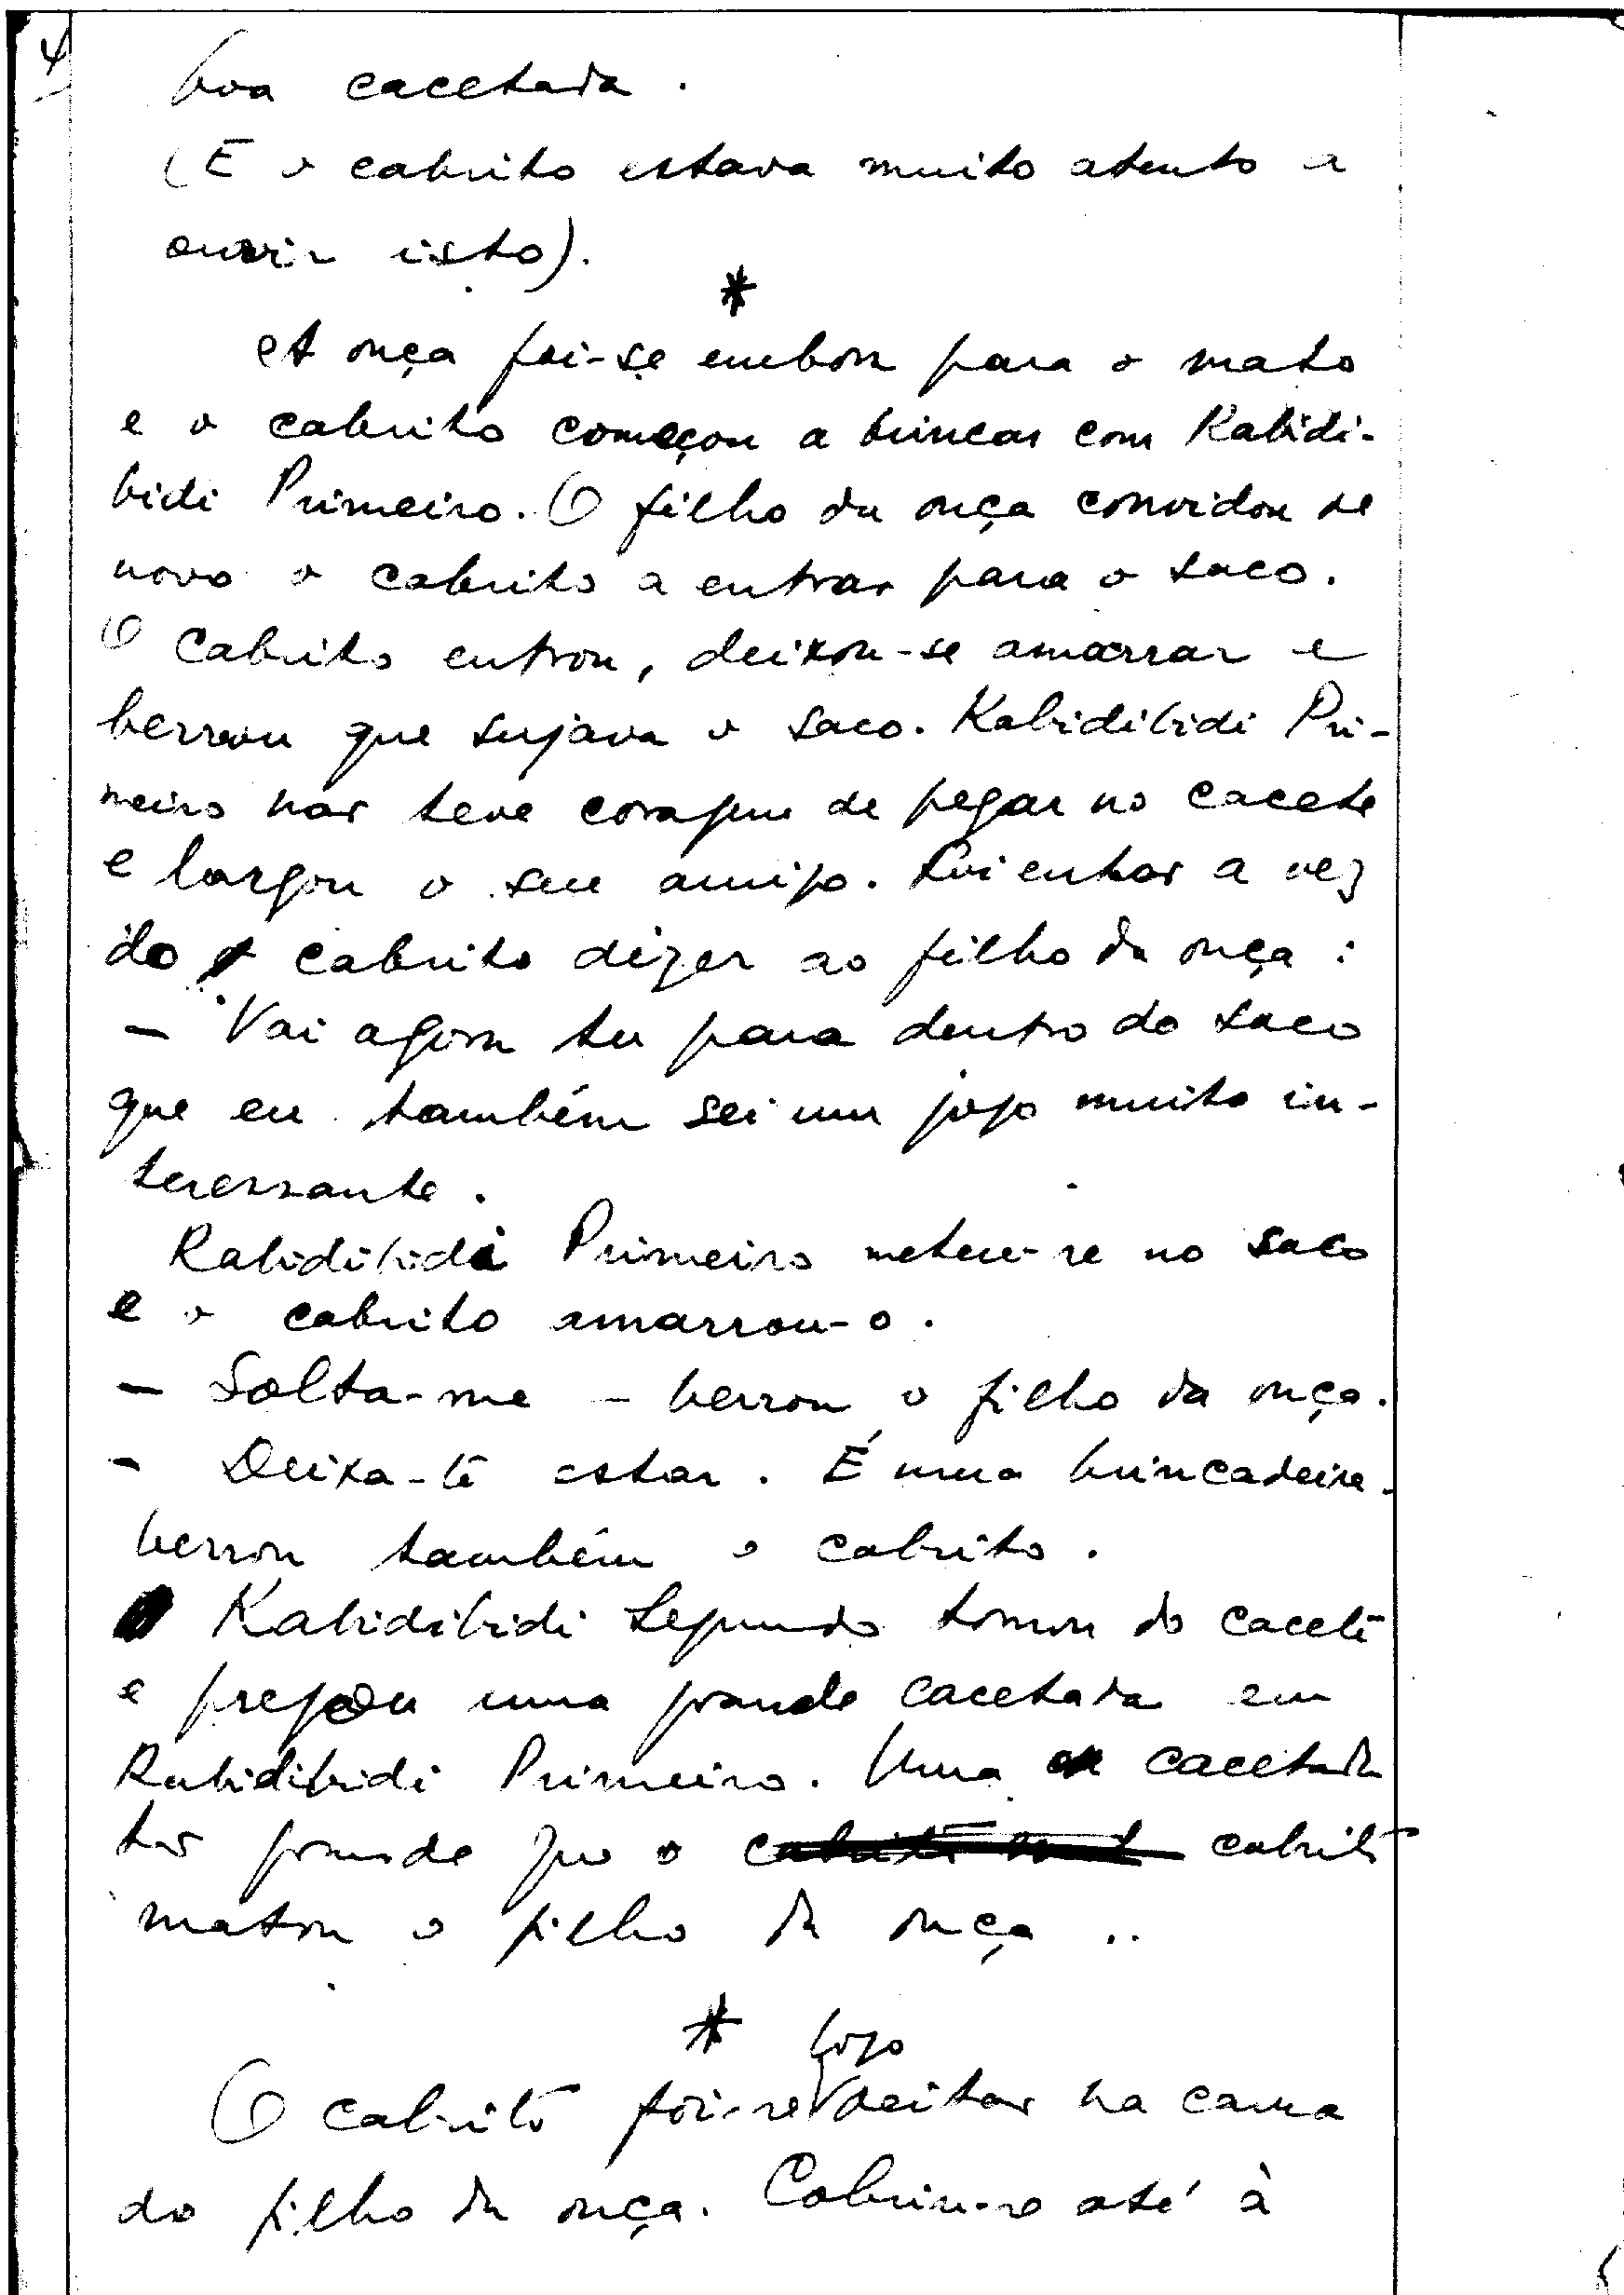 4
boa cacetada.
(E o cabrito estava muito atento a
ouvir isto).
*
A onça foi-se embora para o mato
e o cabrito começou a brincar com Kabidi-
bidi Primeiro. O filho da onça convidou de
novo o cabrito a entrar para o saco.
O cabrito entrou, deixou-se amarrar e
berrou que sujava o saco. Kabidibidi Pri-
meiro não teve coragem de pegar no cacete
e largou o seu amigo. Foi então a vez
do cabrito dizer ao filho da onça:
- Vai agora tu para dentro do saco
que eu também sei um jogo muito in-
teressante.
Kabidibidi Primeiro meteu-se no saco
e o cabrito amarrou-o.
- Solta-me - berrou o filho da onça.
- Deixa-te estar. É uma brincadeira -
berrou também o cabrito.
Kabidibidi Segundo tomou do cacete
e pregou uma grande cacetada em
Kabidibidi Primeiro. Uma cacetada
tão grande que o cabrito
matou o filho da onça..
*
logo
O cabrito foi-se deitar na cama
do filho da onça. Cobriu-se até à